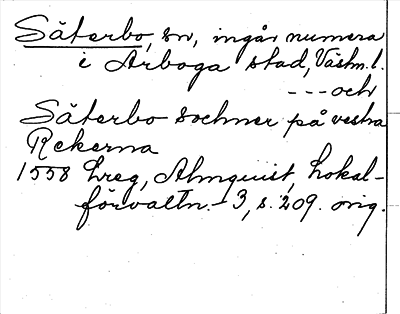 Säterbo, sn, ingår numera
i Arboga stad, Västm. l.
---och
Säterbo sochner på vestra
Rekerna
1558 Lreg, Almquist, Lokal-
förvaltn. 3, s. 209. orig.